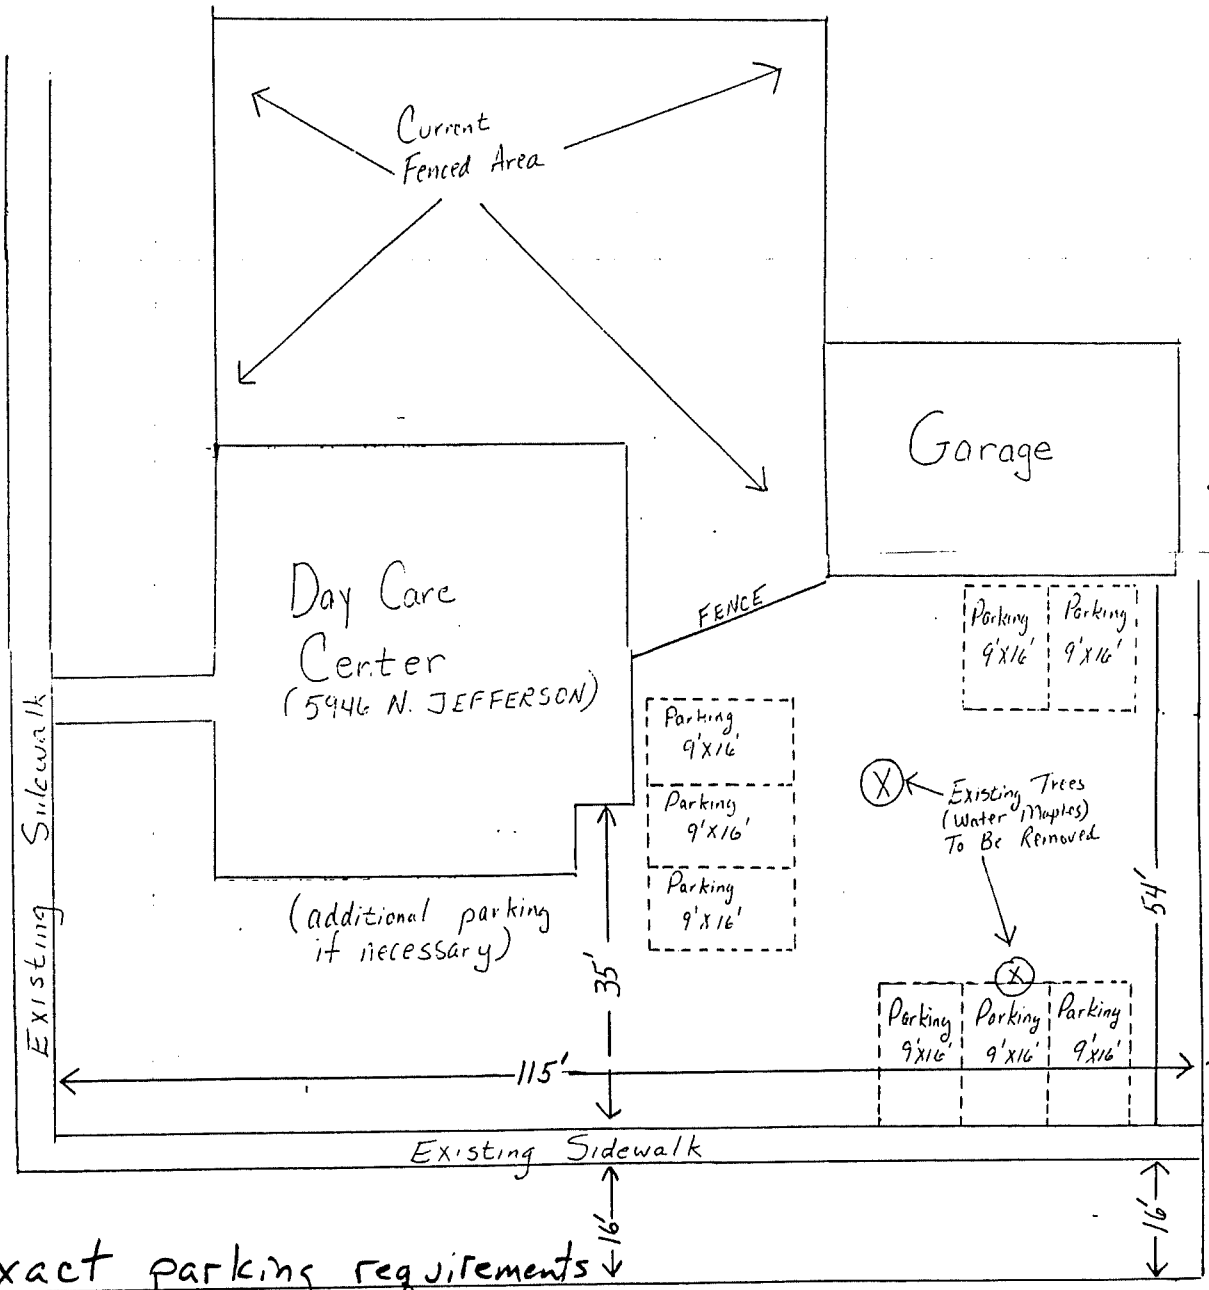 Current
Fenced Area
Garage
Day Care
Center
(5946 N. JEFFERSON)
FENCE
Parking
9'X16'
Parking
9'X16'
Parking
9'X16'
Parking
9'X16'
Parking
9'X16'
Existing Trees
(Water Maples)
To Be Removed
(additional parking
if necessary)
35'
54'
Parking
9'X16'
Parking
9'X16'
Parking
9'X16'
115'
Existing Sidewalk
Existing Sidewalk
16'
16'
xact parking requirements